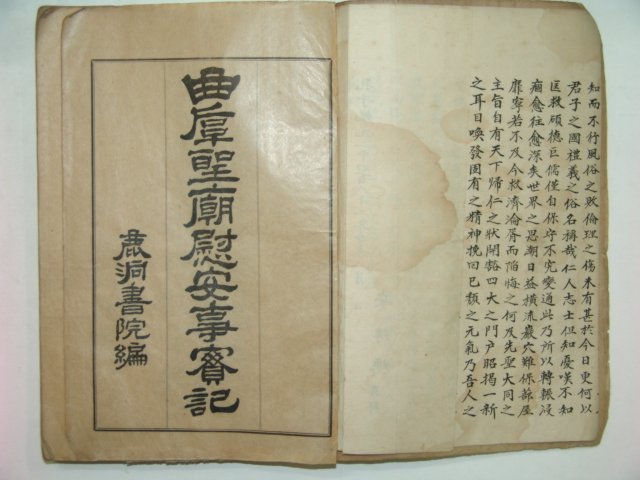 知而不行風俗之敗倫理之傷未有甚於今日更何以
君子之國禮義之俗名稱哉仁人志士但知憂嘆不知
匡救碩德巨儒僅自保守不究變通此乃所以轉輾浸
痼愈往愈深矣世界之思潮日益橫流巖穴難保蔀屋
靡寧若不及今救濟淪胥而陷悔之何及先聖大同之
主旨自有天下歸仁之狀開豁四大之門户昭揭一新
之耳目喚發固有之精神挽回已頹之元氣乃吾人之
曲阜聖廟慰安事實記
鹿洞書院編